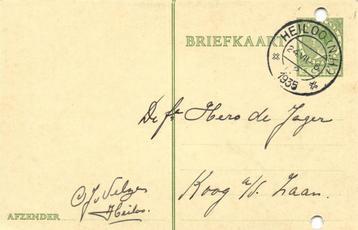 BRIEFKAART
HEILOO (N.H.)
1935
De fa Hero de Jager
Koog a/d. Zaan.
Heiloo.
AFZENDER